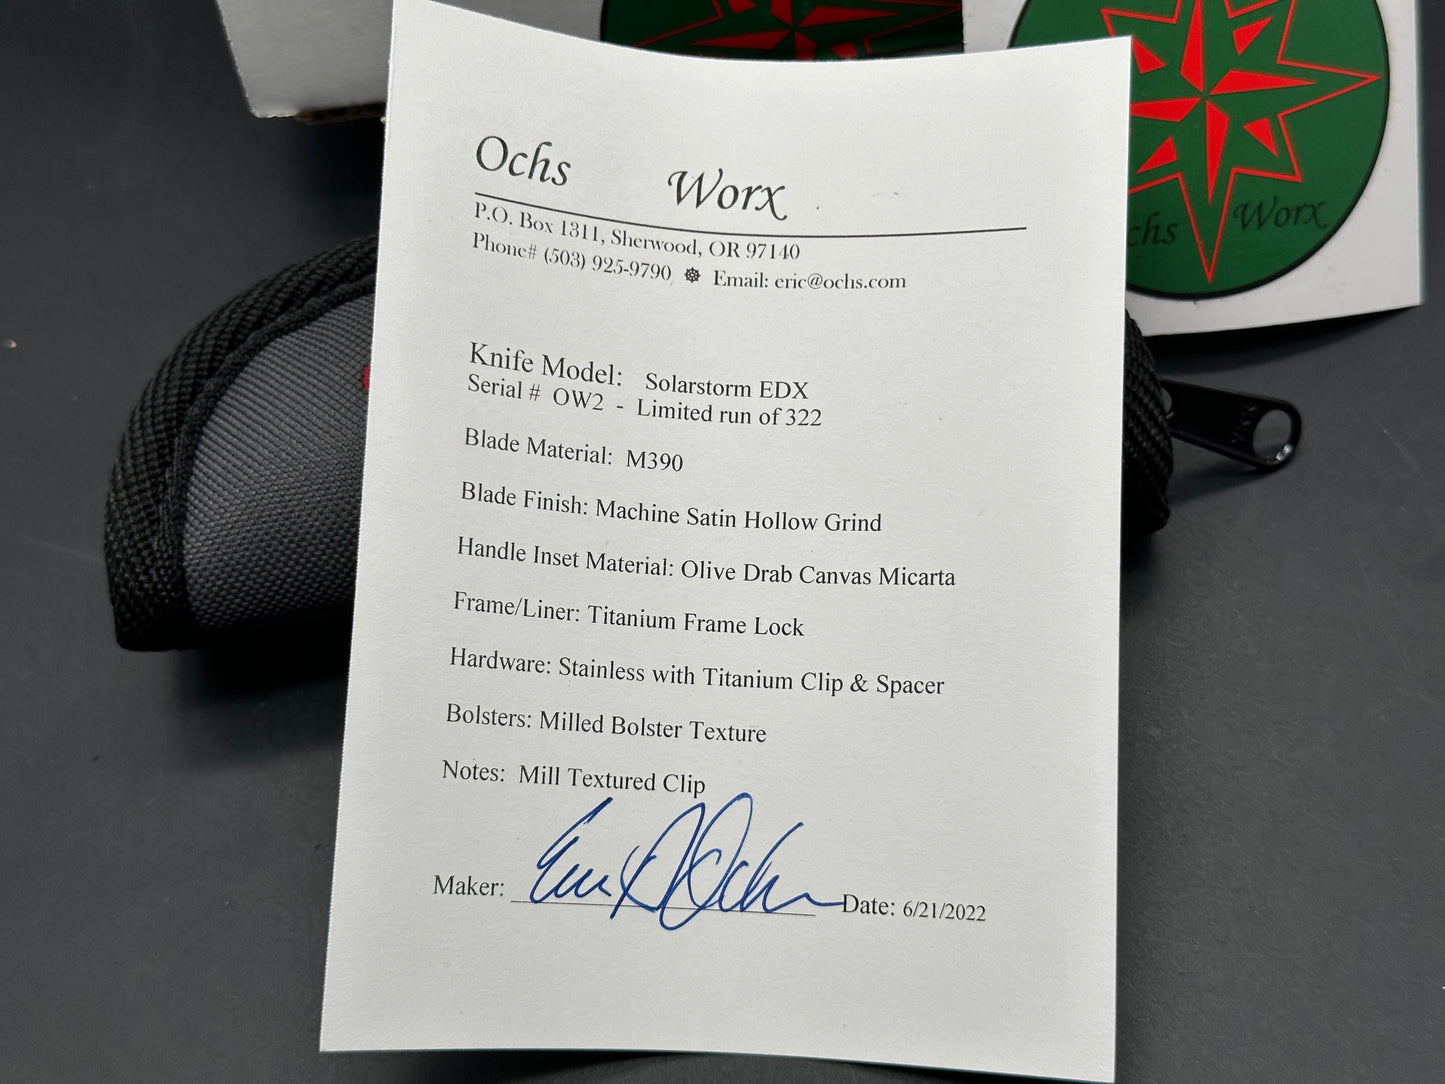 Ochs Worx
P.O. Box 1311, Sherwood, OR 97140
Phone# (503) 925-9790 ☸ Email: eric@ochs.com
Knife Model: Solarstorm EDX
Serial # OW2 - Limited run of 322
Blade Material: M390
Blade Finish: Machine Satin Hollow Grind
Handle Inset Material: Olive Drab Canvas Micarta
Frame/Liner: Titanium Frame Lock
Hardware: Stainless with Titanium Clip & Spacer
Bolsters: Milled Bolster Texture
Notes: Mill Textured Clip
Maker: Date: 6/21/2022
chs Worx